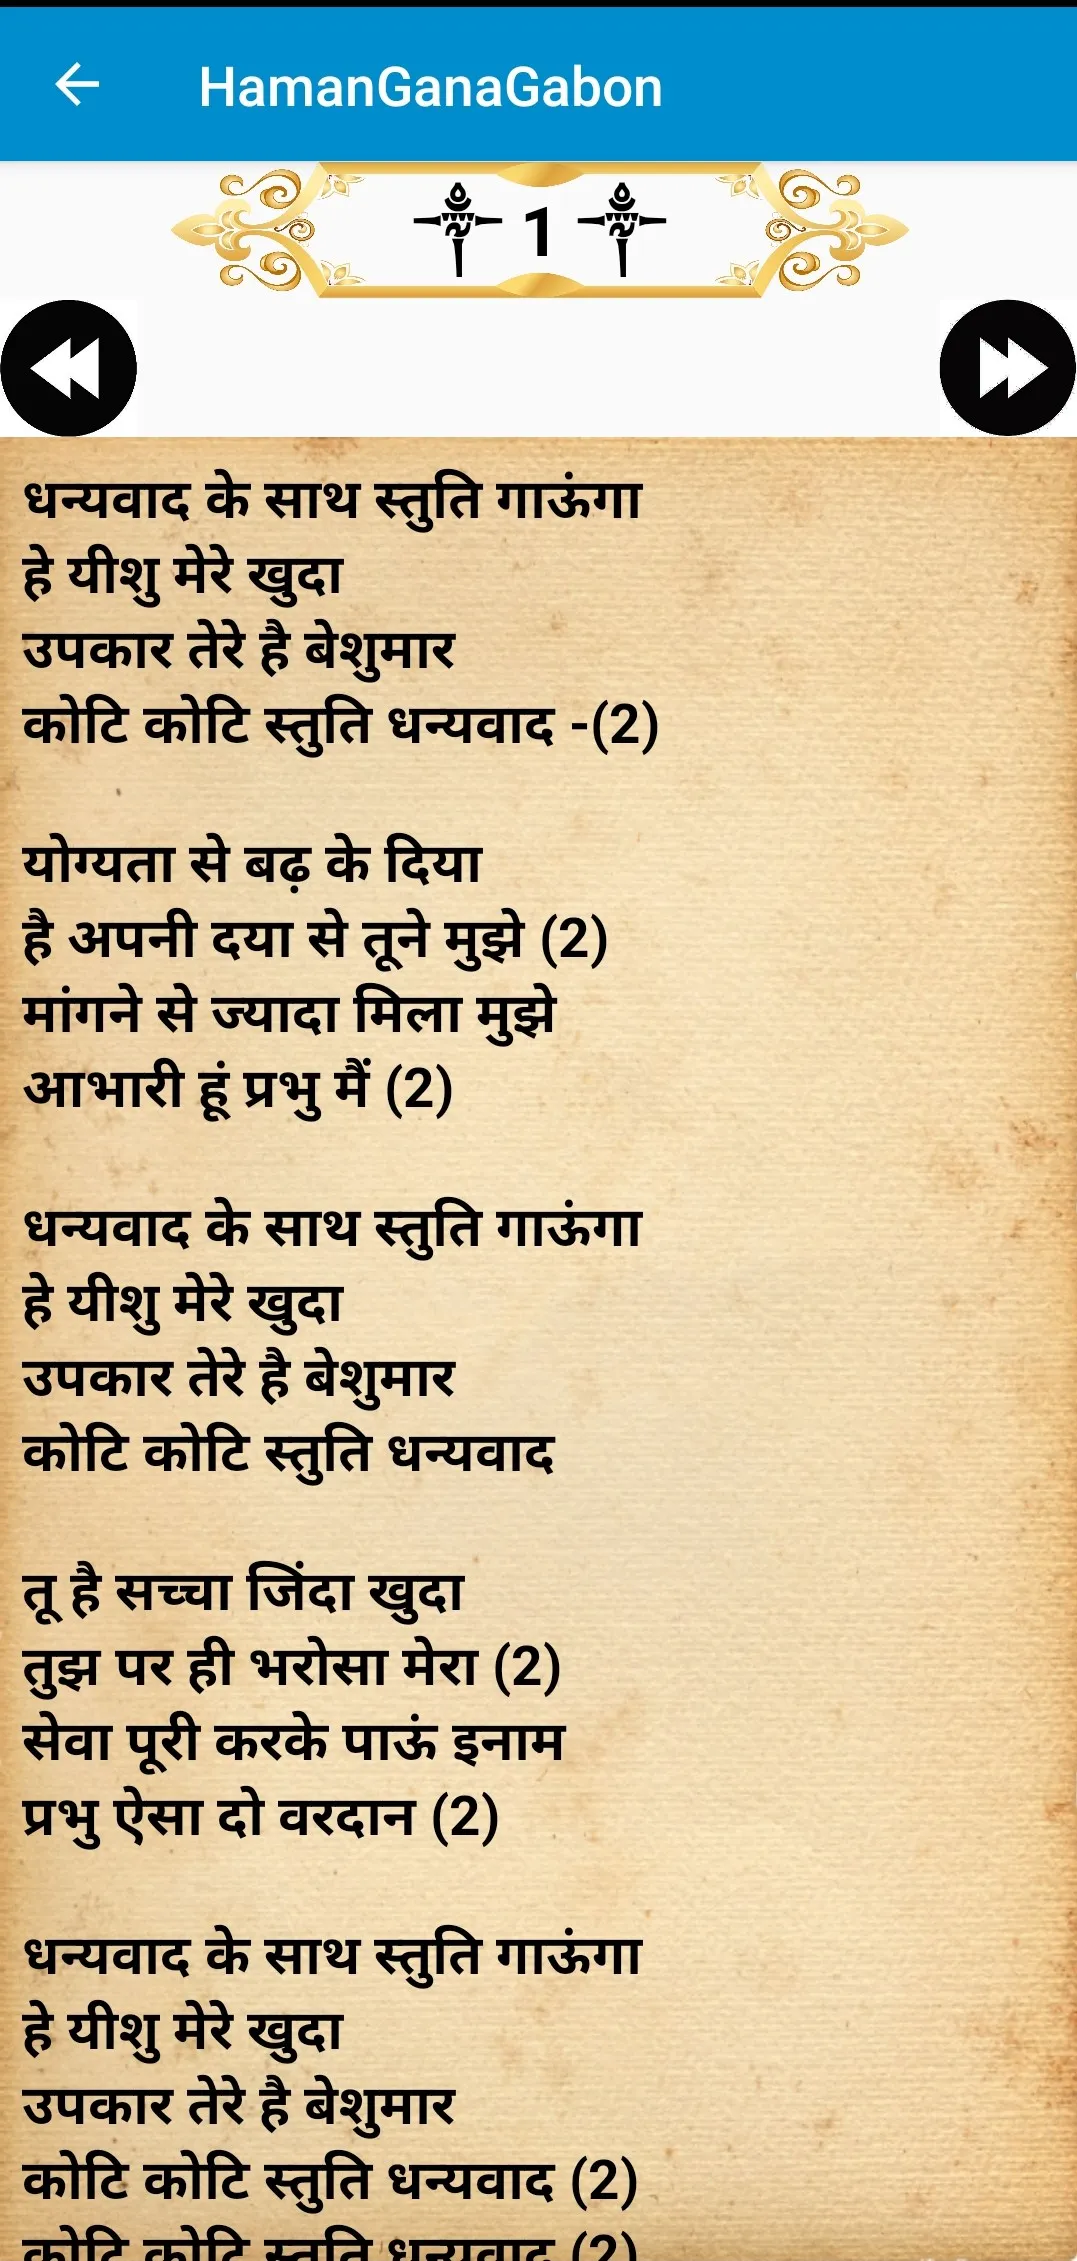 HamanGanaGabon
1
धन्यवाद के साथ स्तुति गाऊंगा
हे यीशु मेरे खुदा
उपकार तेरे है बेशुमार
कोटि कोटि स्तुति धन्यवाद -(2)
योग्यता से बढ़ के दिया
है अपनी दया से तूने मुझे (2)
मांगने से ज्यादा मिला मुझे
आभारी हूं प्रभु मैं (2)
धन्यवाद के साथ स्तुति गाऊंगा
हे यीशु मेरे खुदा
उपकार तेरे है बेशुमार
कोटि कोटि स्तुति धन्यवाद
तू है सच्चा जिंदा खुदा
तुझ पर ही भरोसा मेरा (2)
सेवा पूरी करके पाऊं इनाम
प्रभु ऐसा दो वरदान (2)
धन्यवाद के साथ स्तुति गाऊंगा
हे यीशु मेरे खुदा
उपकार तेरे है बेशुमार
कोटि कोटि स्तुति धन्यवाद (2)
कोटि कोटि स्तुति धन्यवाद (2)